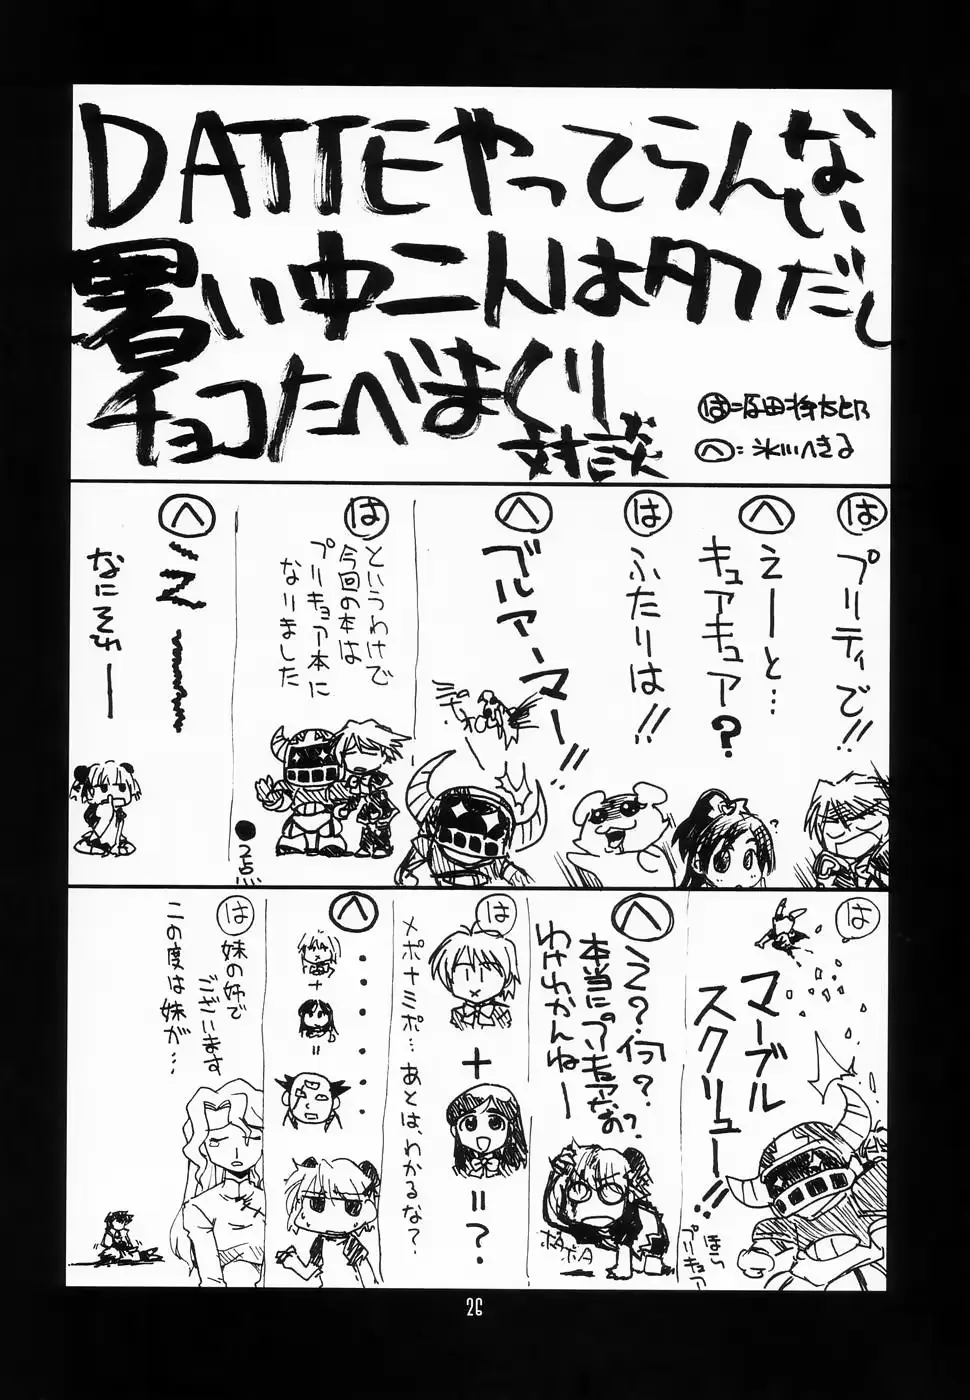 DATTEやってらんない
暑い中こんはタフだし
チョコたべまくり
対談
は=原田将太郎
へ:氷川へきる
は
プリティで!!
へ
えーと…
キュアキュア?
は
ふたりは!!
へ
ブルアーマー!!
は
というわけで
今回の本は
プリキュア本に
なりました
●2点
へ
え〜〜
なにそれー
は
マーブル
スクリュー!!
ほら
プリキュア
へ
え?何?
本当にプリキュアなの?
わけわかんねー
は
+
=?
メポナミポ…あとは、わかるな?
へ
・・・・・・・
+
=
は
妹の姉で
ございます
この度は妹が…
26